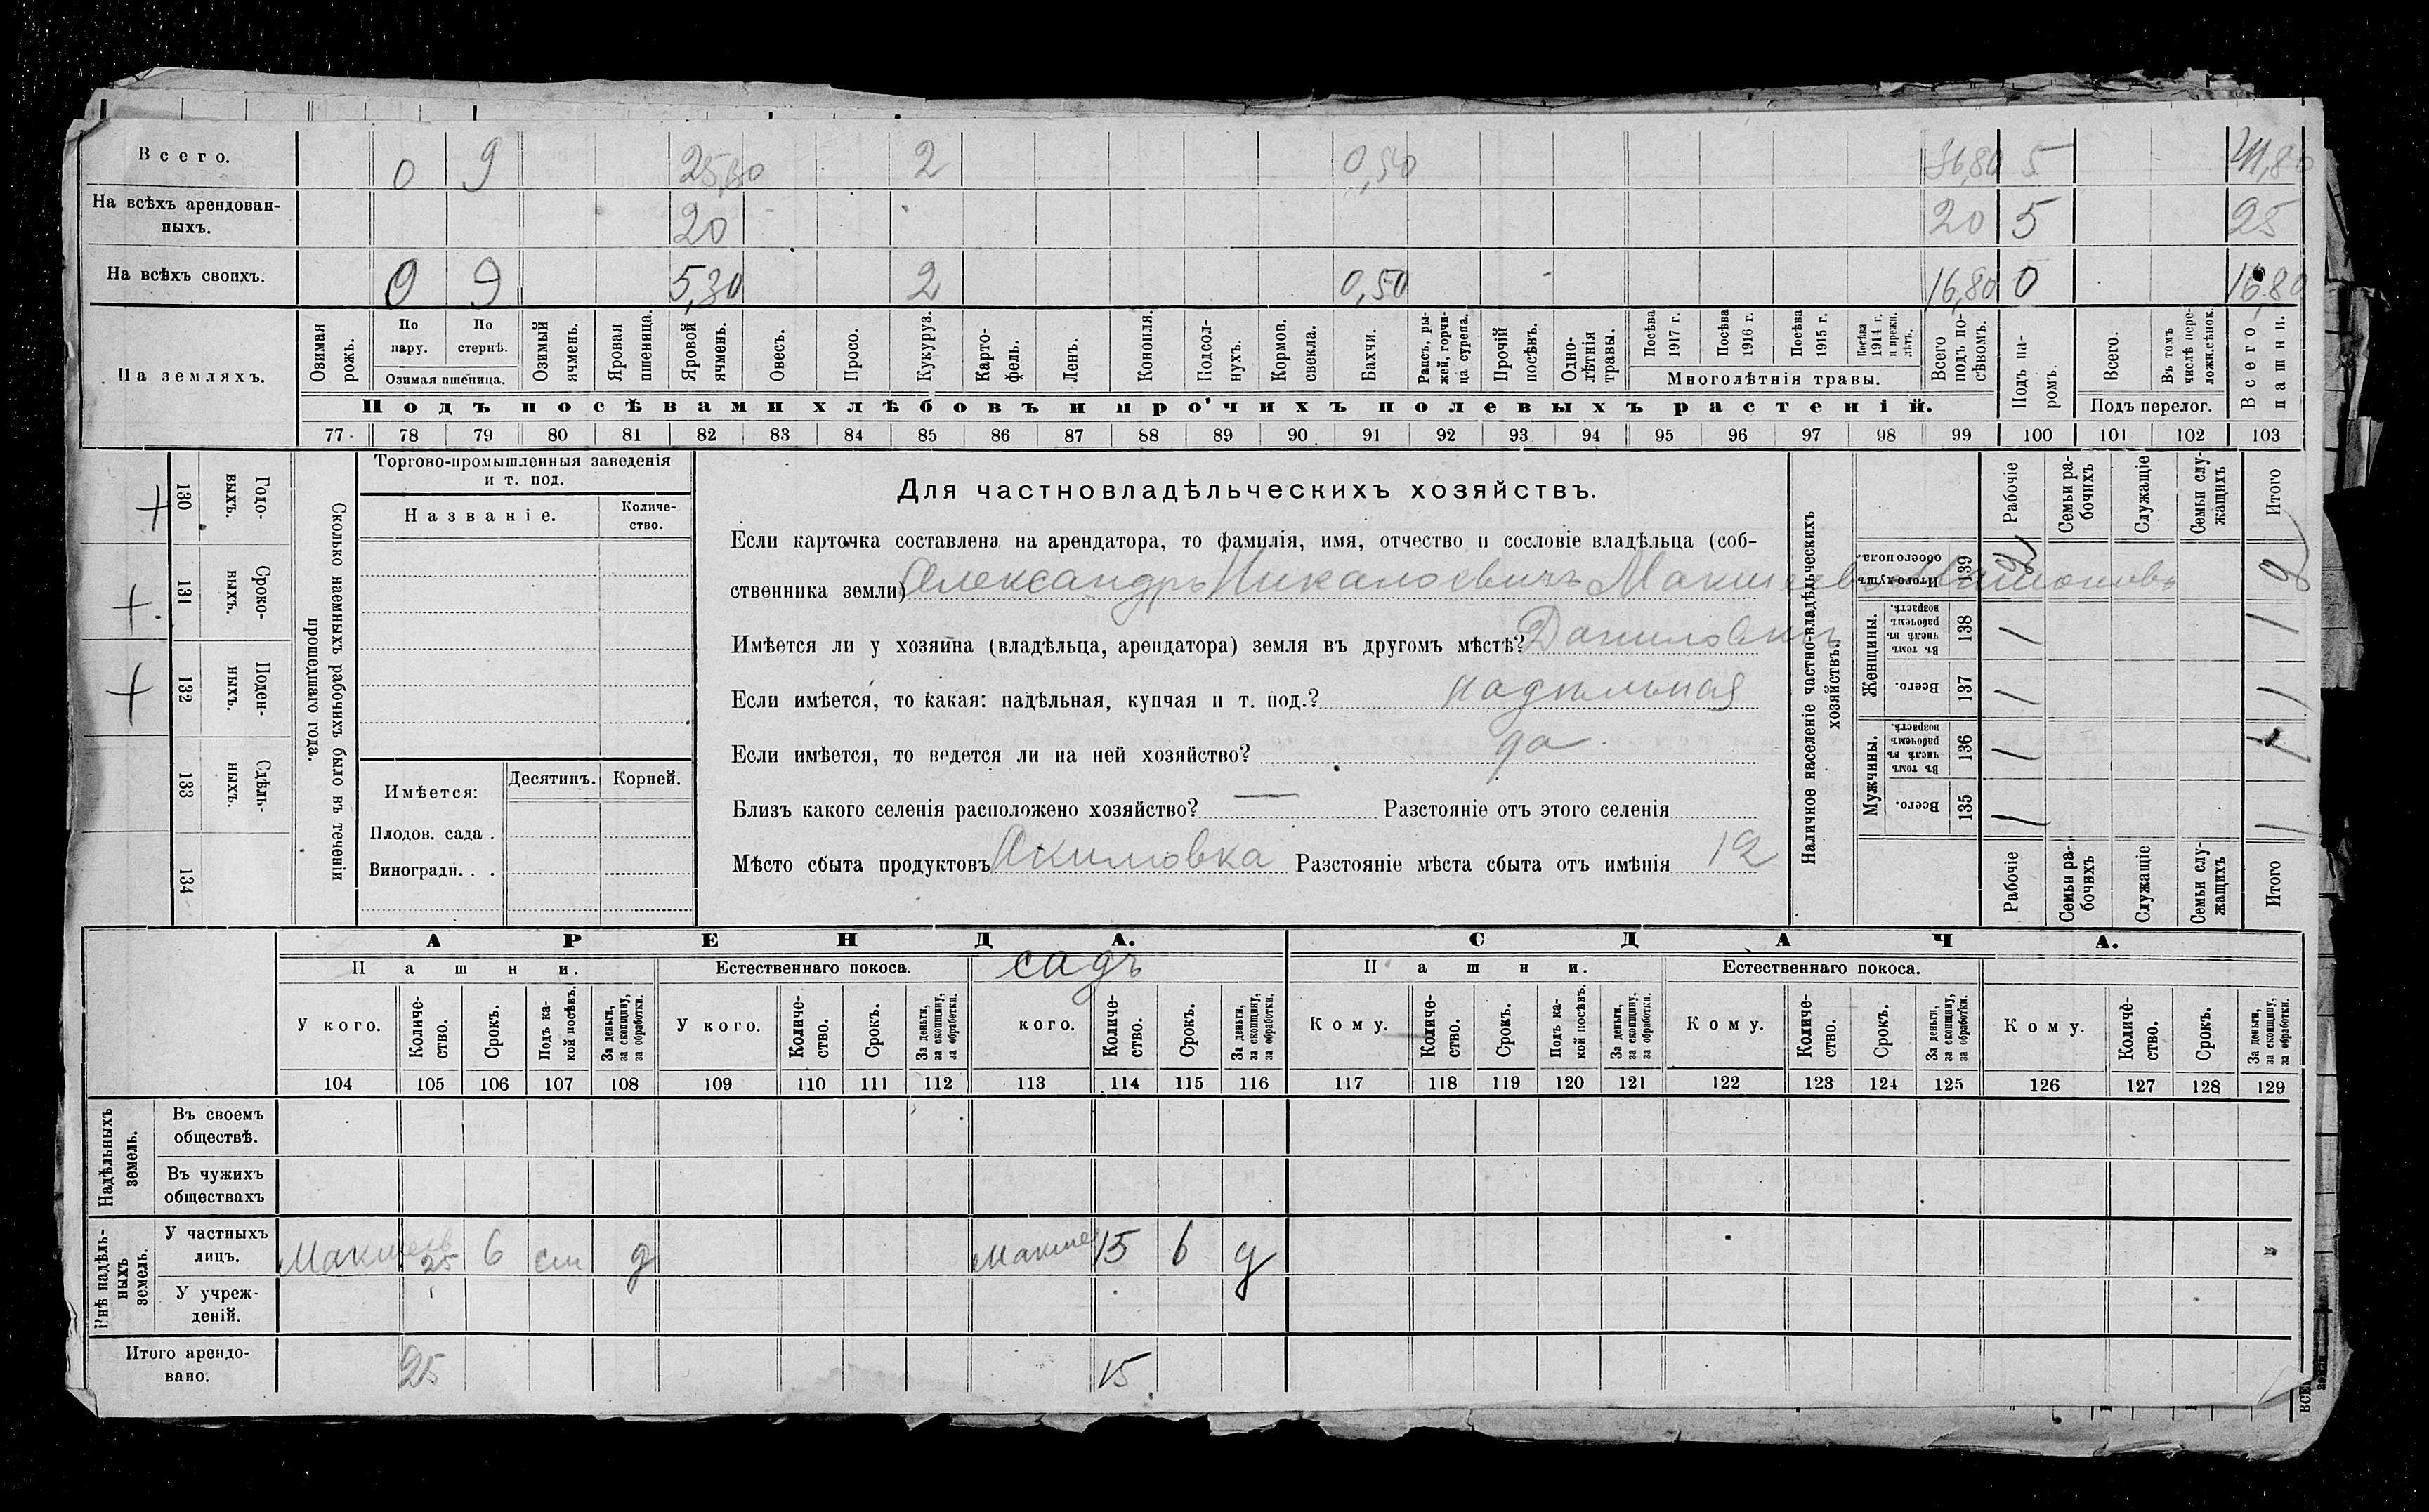 Всего. 0 9 25,30 2 0,50 36,80 5 41,80
На всѣхъ арендован-
ныхъ. 20 20 5 25
На всѣхъ своихъ. 0 9 5,30 2 0,50 16,80 0 16,80
На земляхъ.
Озимая рожь.
По пару.
По стернѣ.
Озимая пшеница.
Озимый ячмень.
Яровая пшеница.
Яровой ячмень.
Овесъ.
Просо.
Кукуруз.
Карто-
фель.
Ленъ.
Конопля.
Подсол-
нухъ.
Кормов. свекла.
Бахчи.
Рапсъ, ры-
жей, горчи-
ца сурепа.
Прочій посѣвъ.
Одно-
лѣтнія травы.
Посѣва 1917 г.
Посѣва 1916 г.
Посѣва 1915 г.
Посѣва 1914 г. и прежн. лѣтъ.
Многолѣтнія травы.
Всего подъ по-
сѣвомъ.
Подъ па-
ромъ.
Всего.
Въ томъ числѣ пере-
ложн. сѣнок.
Подъ перелог.
Всего пашни.
Подъ посѣвами хлѣбовъ и прочихъ полевыхъ растеній.
77 78 79 80 81 82 83 84 85 86 87 88 89 90 91 92 93 94 95 96 97 98 99 100 101 102 103
Сколько наемныхъ рабочихъ было въ теченіи
прошедшаго года.
Годо-
выхъ.
130 +
Сроко-
ныхъ.
131 +
Поден-
ныхъ.
132 +
Сдѣль-
ныхъ.
133
134
Торгово-промышленныя заведенія
и т. под.
Названіе.
Количе-
ство.
Имѣется:
Десятинъ.
Корней.
Плодов. сада .
Виноградн. . .
Для частновладѣльческихъ хозяйствъ.
Если карточка составлена на арендатора, то фамилія, имя, отчество и сословіе владѣльца (соб-
ственника земли) Александръ
Имѣется ли у хозяина (владѣльца, арендатора) земля въ другомъ мѣстѣ?
Если имѣется, то какая: надѣльная, купчая и т. под.? надѣльная
Если имѣется, то ведется ли на ней хозяйство? да
Близъ какого селенія расположено хозяйство? — Разстояніе отъ этого селенія
Мѣсто сбыта продуктовъ Акимовка Разстояніе мѣста сбыта отъ имѣнія 12
Наличное населеніе частно-владѣльческихъ
хозяйствъ.
Рабочіе
Семьи ра-
бочихъ
Служащіе
Семьи слу-
жащихъ
Итого
Итого душъ обоего пола. 139 2 2
Женщины.
Въ томъ числѣ въ рабочемъ возрастѣ. 138 1 1
Всего. 137 1 1
Мужчины.
Въ томъ числѣ въ рабочемъ возрастѣ. 136 1 1
Всего. 135 1 1
Рабочіе
Семьи ра-
бочихъ
Служащіе
Семьи слу-
жащихъ
Итого
АРЕНДА.
СДАЧА.
Пашни.
Естественнаго покоса.
садъ
Пашни.
Естественнаго покоса.
У кого.
Количе-
ство.
Срокъ.
Подъ ка-
кой посѣвъ.
За деньги, за скопщину, за обработки.
У кого.
Количе-
ство.
Срокъ.
За деньги, за скопщину, за обработки.
кого.
Количе-
ство.
Срокъ.
За деньги, за скопщину, за обработки.
Кому.
Количе-
ство.
Срокъ.
Подъ ка-
кой посѣвъ.
За деньги, за скопщину, за обработки.
Кому.
Количе-
ство.
Срокъ.
За деньги, за скопщину, за обработки.
Кому.
Количе-
ство.
Срокъ.
За деньги, за скопщину, за обработки.
104 105 106 107 108 109 110 111 112 113 114 115 116 117 118 119 120 121 122 123 124 125 126 127 128 129
Надѣльныхъ
земель.
Въ своемъ
обществѣ.
Въ чужихъ
обществахъ
Внѣ надѣль-
ныхъ
земель.
У частныхъ
лицъ. 25 6 д 15 6 д
У учреж-
деній.
Итого арендо-
вано. 25 15